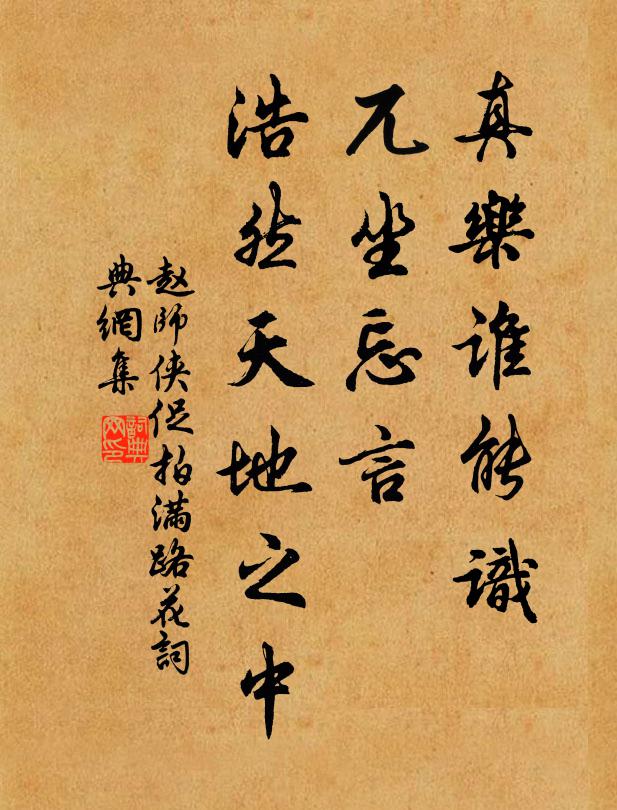 真樂誰能識
兀坐忘言
浩然天地之中
赵師俠促拍满路花詞
典網集
詞典網印